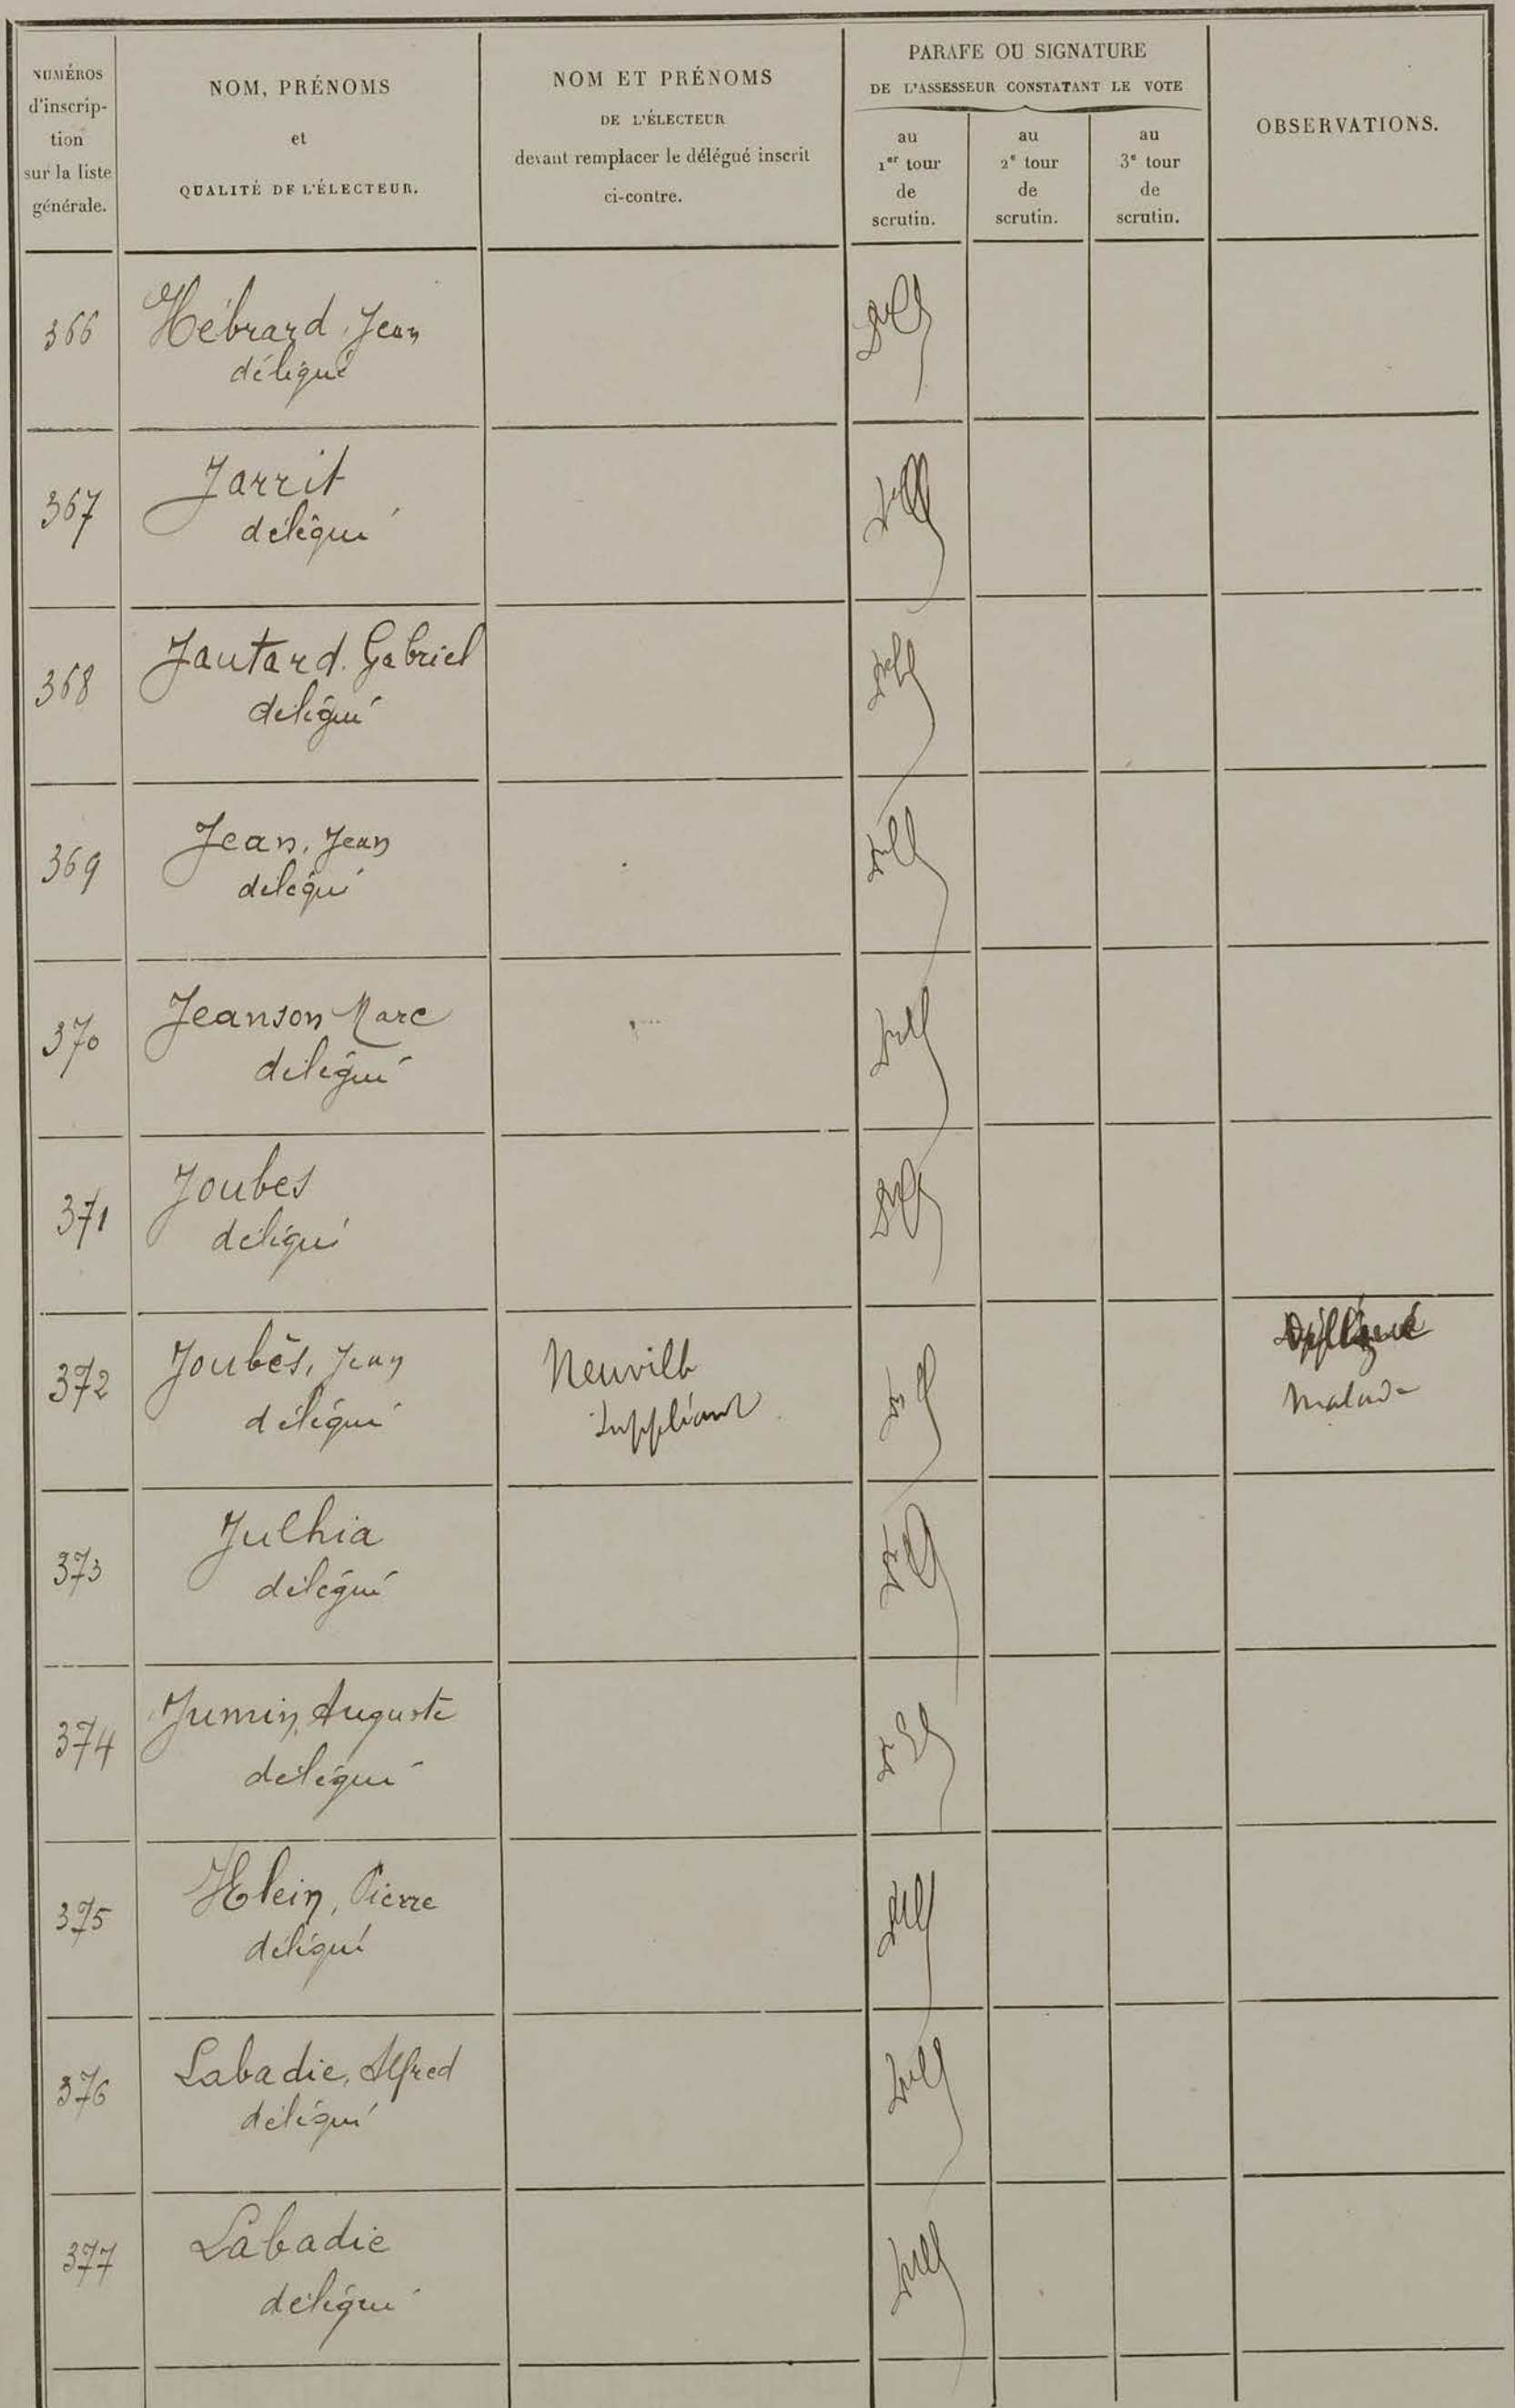 NUMÉROS
d'inscrip-
tion
sur la liste
générale.
NOM, PRÉNOMS
et
QUALITÉ DE L'ÉLECTEUR.
NOM ET PRÉNOMS
DE L'ÉLECTEUR
devant remplacer le délégué inscrit
ci-contre.
PARAFE OU SIGNATURE
DE L'ASSESSEUR CONSTATANT LE VOTE
au
1er tour
de
scrutin.
au
2e tour
de
scrutin.
au
3e tour
de
scrutin.
OBSERVATIONS.
366 Hébrard, Jean
délégué
367 Jarrit
délégué
368 Jautard. Gabriel
délégué
369 Jean, Jean
délégué
370 Jeanson Marc
délégué
371 Joubes
délégué
372 Joubès, Jean
délégué
Neuville
Suppléant
Malade
373 Julhia
délégué
374 Jumin, Auguste
délégué
375 Klein, Pierre
délégué
376 Labadie, Alfred
délégué
377 Labadie
délégué